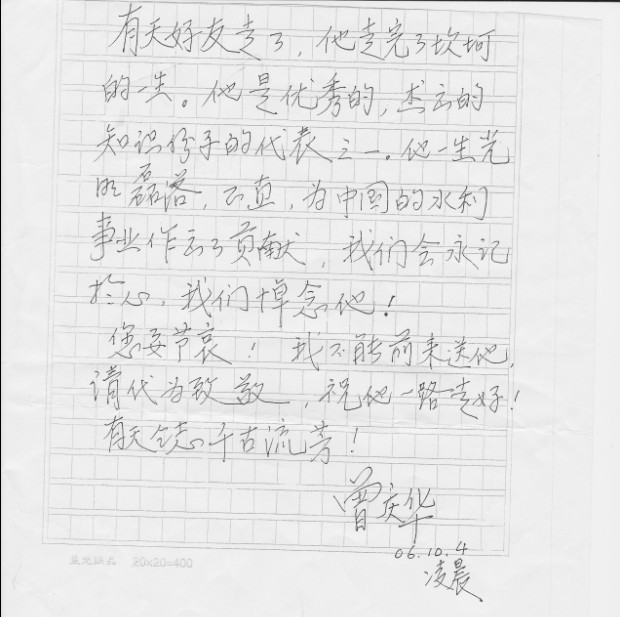 有天好友走了，他走完了坎坷
的一生。他是优秀的，杰出的
知识份子的代表之一。他一生光
明磊落，正直，为中国的水利
事业作出了贡献，我们会永记
于心，我们悼念他！
您要节哀！我不能前来送他，
请代为致敬，祝他一路走好！
有天同志千古流芳！
曾庆华
06.10.4
凌晨
20×20=400